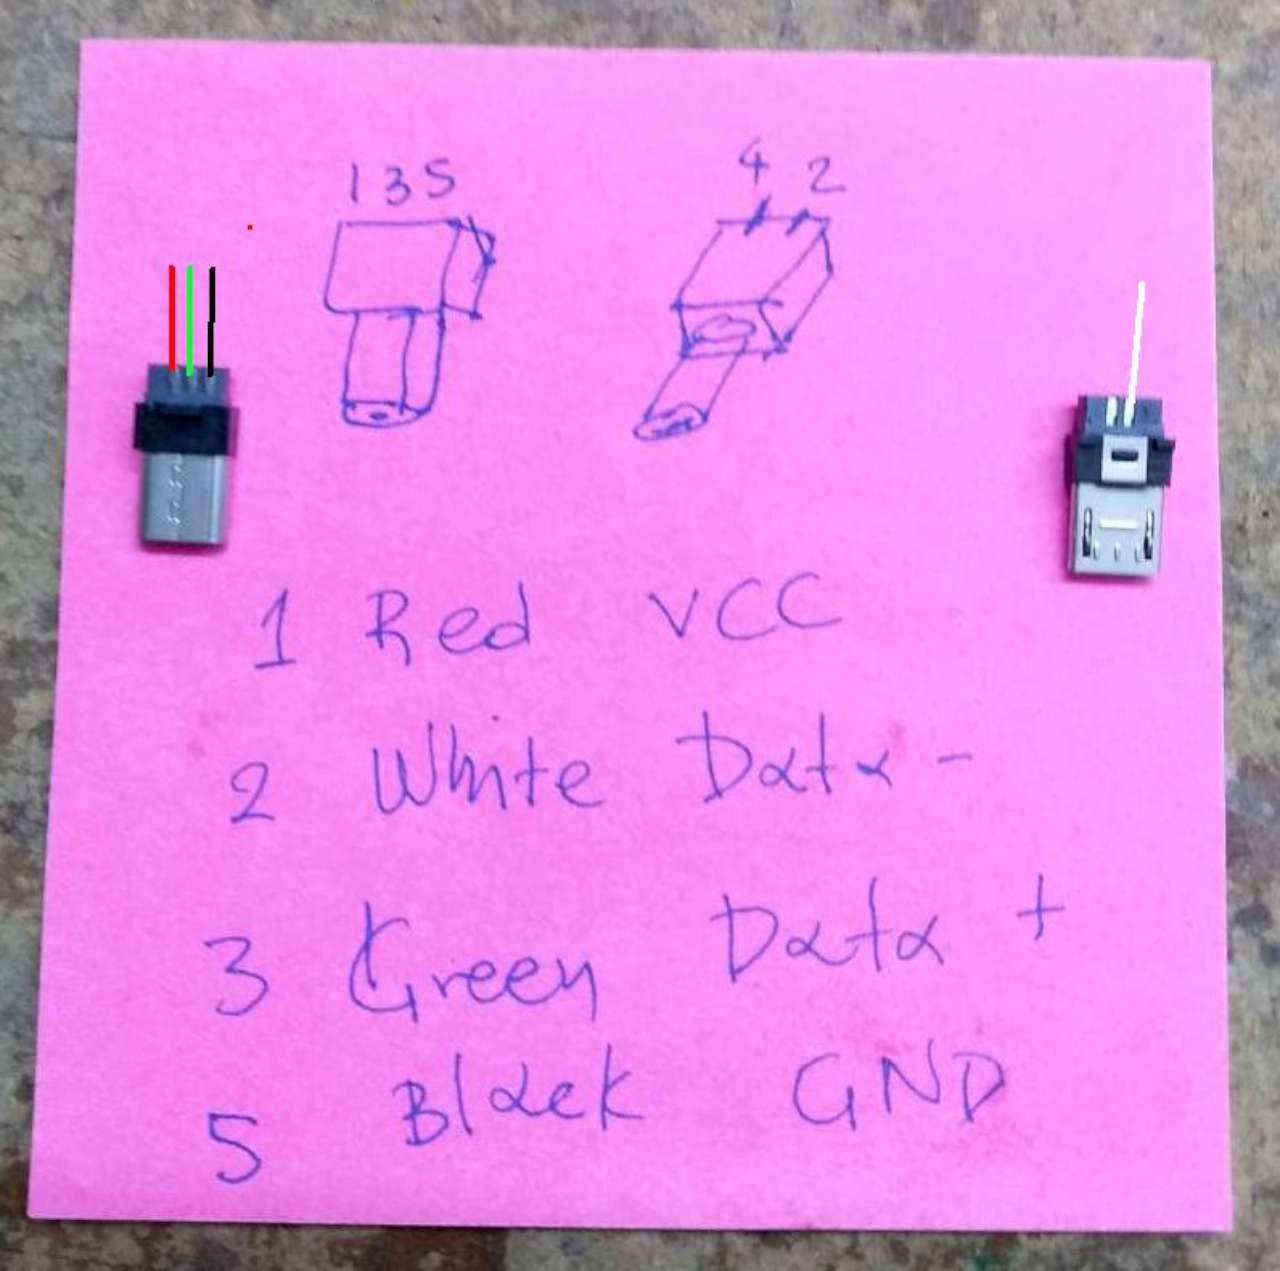 1 3 5
4 2
1 Red VCC
2 White Data -
3 Green Data +
5 Black GND